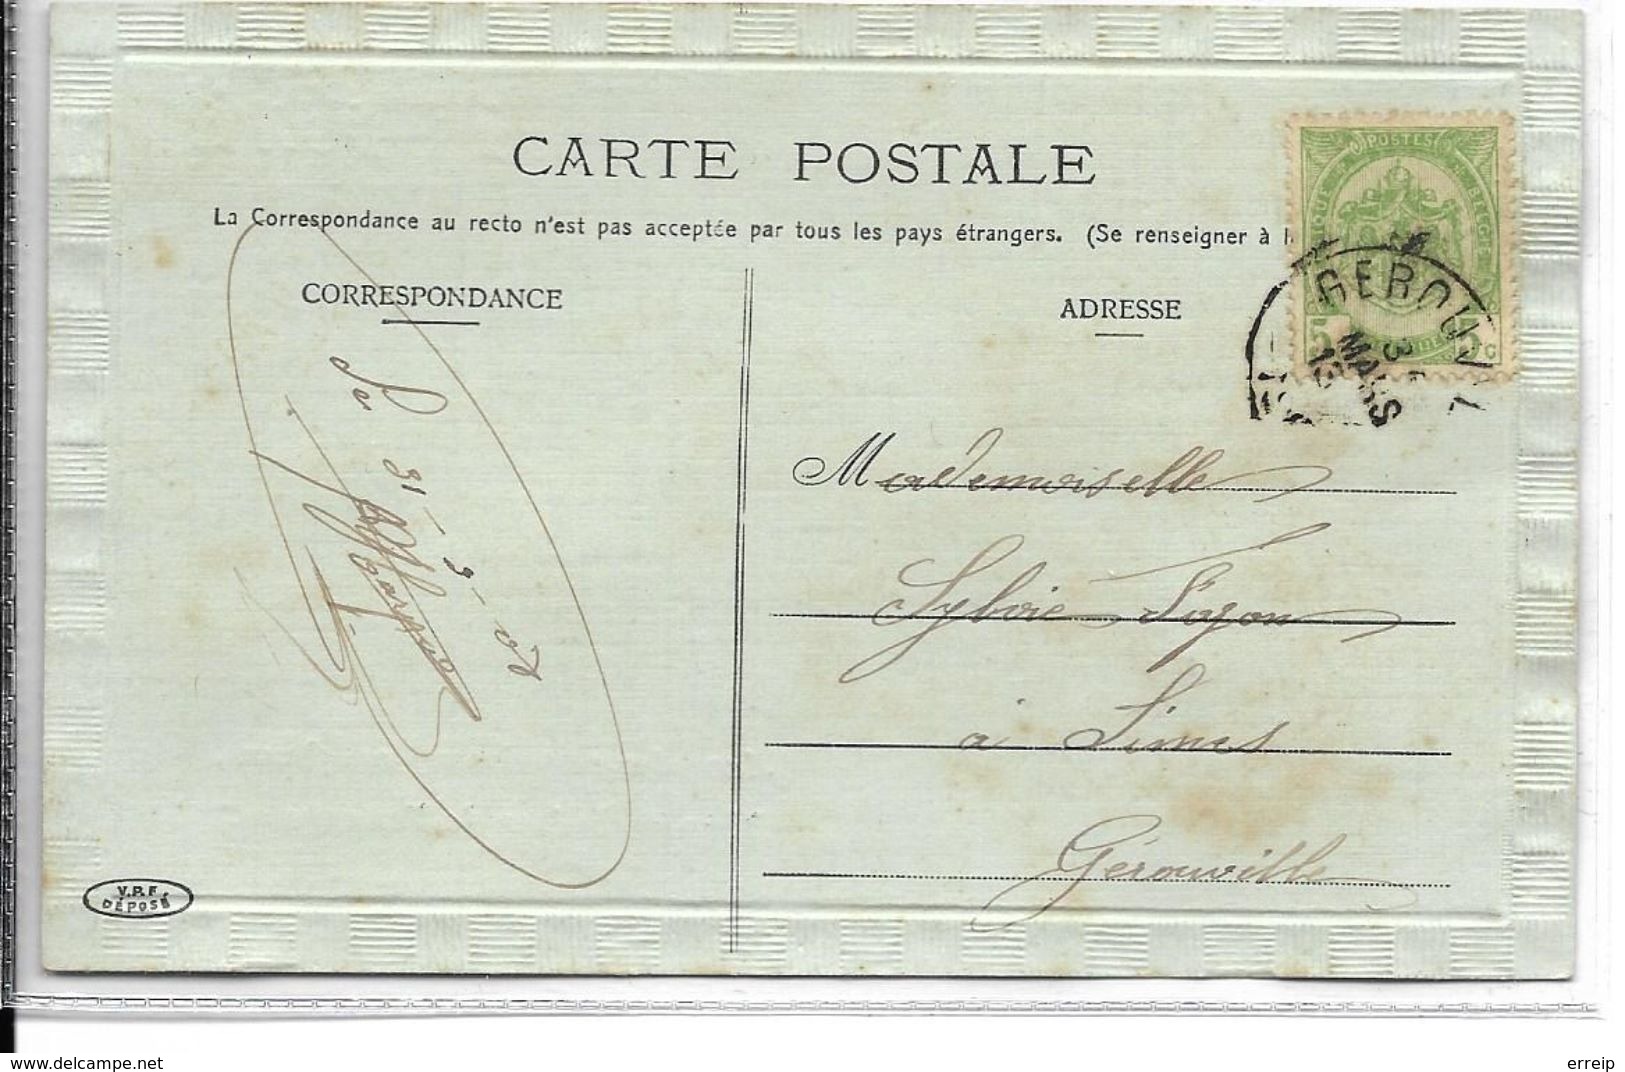 CARTE POSTALE
La Correspondance au recto n'est pas acceptée par tous les pays étrangers. (Se renseigner à l
CORRESPONDANCE
ADRESSE
POSTES
BELGIQUE
5 5c
GEROUVIL
3
MARS
Le 31-3-08
Mademoiselle
Sylvie Fagon
à Limes
Gérouville
V.P.F.
DÉPOSÉ
delcampe.net
erreip